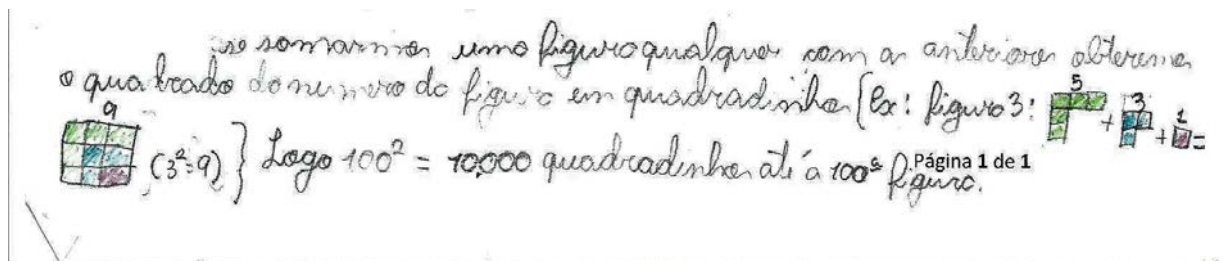 se somarmos uma figura qualquer com as anteriores obteremos
o quadrado do numero da figura em quadradinhos {Ex: figura 3: 5 + 3 + 1 =
9 (3²=9)} Logo 100² = 10.000 quadradinhos até a 100ª figura.
Página 1 de 1